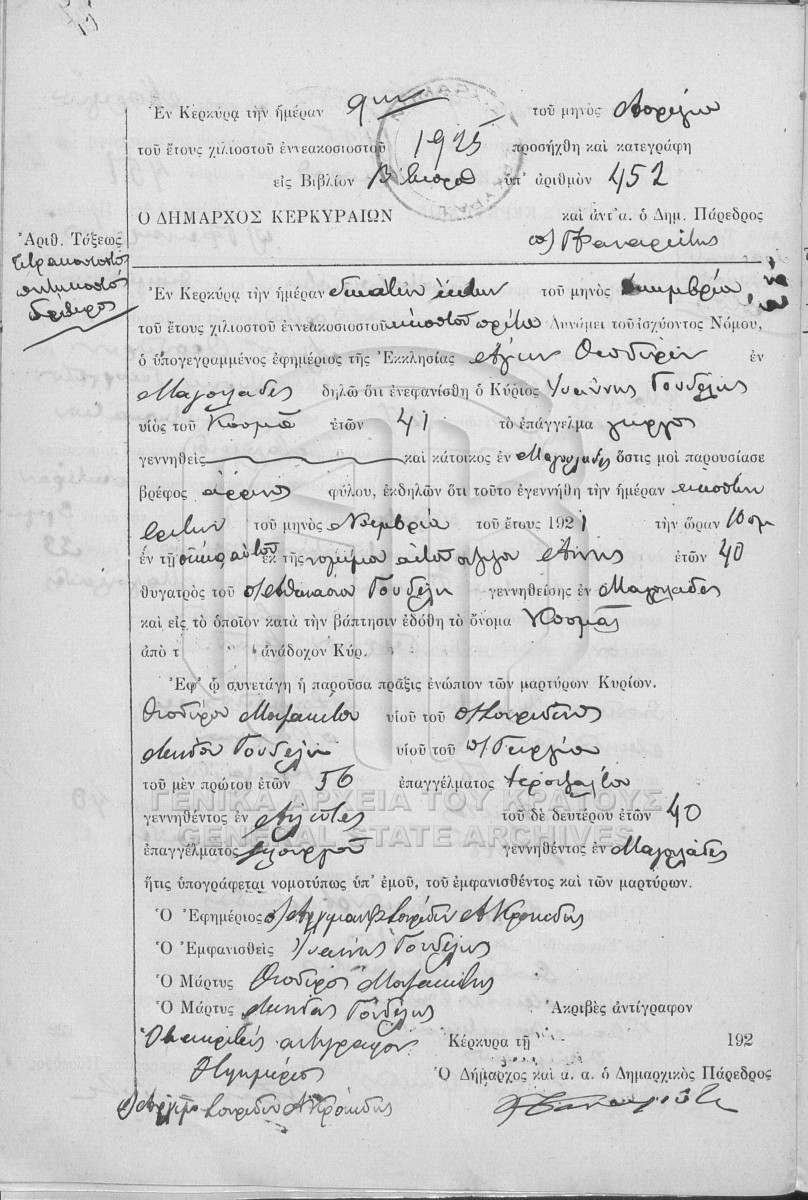 Ἐν Κερκύρᾳ τὴν ἡμέραν 9ην τοῦ μηνὸς Ἀπριλίου
τοῦ ἔτους χιλιοστοῦ ἐννεακοσιοστοῦ 1925 προσήχθη καὶ κατεγράφη
εἰς Βιβλίον ὑπ' ἀριθμὸν 452
Ο ΔΗΜΑΡΧΟΣ ΚΕΡΚΥΡΑΙΩΝ καὶ ἀντ'α. ὁ Δημ. Πάρεδρος
Ἀριθ. Τάξεως
τετρακοσιοστὸς
πεντηκοστὸς
δεύτερος
Ἐν Κερκύρᾳ τὴν ἡμέραν δεκάτην ἕκτην τοῦ μηνὸς
τοῦ ἔτους χιλιοστοῦ ἐννεακοσιοστοῦ εἰκοστοῦ πρώτου Δυνάμει τοῦ ἰσχύοντος Νόμου,
ὁ ὑπογεγραμμένος ἐφημέριος τῆς Ἐκκλησίας Ἁγίων Θεοδώρων ἐν
Μαγουλάδες δηλῶ ὅτι ἐνεφανίσθη ὁ Κύριος Ἰωάννης Γουδέλης
υἱὸς τοῦ Κοσμᾶ ἐτῶν 41 τὸ ἐπάγγελμα γεωργὸς
γεννηθεὶς καὶ κάτοικος ἐν Μαγουλάδες ὅστις μοὶ παρουσίασε
βρέφος ἄρρενος φύλου, ἐκδηλῶν ὅτι τοῦτο ἐγεννήθη τὴν ἡμέραν εἰκοστὴν
τρίτην τοῦ μηνὸς Νοεμβρίου τοῦ ἔτους 1921 τὴν ὥραν 10 πμ
ἐν τῇ οἰκίᾳ αὐτοῦ ἐκ τῆς νομίμου αὐτοῦ συζύγου Ἄννης ἐτῶν 40
θυγατρὸς τοῦ π/ Ἀθανασίου Γουδέλη γεννηθείσης ἐν Μαγουλάδες
καὶ εἰς τὸ ὁποῖον κατὰ τὴν βάπτησιν ἐδόθη τὸ ὄνομα Κοσμᾶς
ἀπὸ τ ἀνάδοχον Κύρ.
Ἐφ' ᾧ συνετάγη ἡ παροῦσα πρᾶξις ἐνώπιον τῶν μαρτύρων Κυρίων.
Θεοδώρου υἱοῦ τοῦ π/ Σπυρίδωνος
Γουδέλη υἱοῦ τοῦ π/ Γεωργίου
τοῦ μὲν πρώτου ἐτῶν 56 ἐπαγγέλματος ἱεροψάλτου
γεννηθέντος ἐν τοῦ δὲ δευτέρου ἐτῶν 40
ἐπαγγέλματος γεωργοῦ γεννηθέντος ἐν Μαγουλάδες
ἥτις ὑπογράφεται νομοτύπως ὑπ' ἐμοῦ, τοῦ ἐμφανισθέντος καὶ τῶν μαρτύρων.
Ὁ Ἐφημέριος Σπυρίδων
Ὁ Ἐμφανισθεὶς Ἰωάννης Γουδέλης
Ὁ Μάρτυς Θεόδωρος
Ὁ Μάρτυς Γουδέλης Ἀκριβὲς ἀντίγραφον
ἀντίγραφον Κέρκυρα τῇ 192
Ὁ ἐφημέριος Ὁ Δήμαρχος καὶ α. α. ὁ Δημαρχικὸς Πάρεδρος
Σπυρίδων
ΓΕΝΙΚΑ ΑΡΧΕΙΑ ΤΟΥ ΚΡΑΤΟΥΣ
GENERAL STATE ARCHIVES